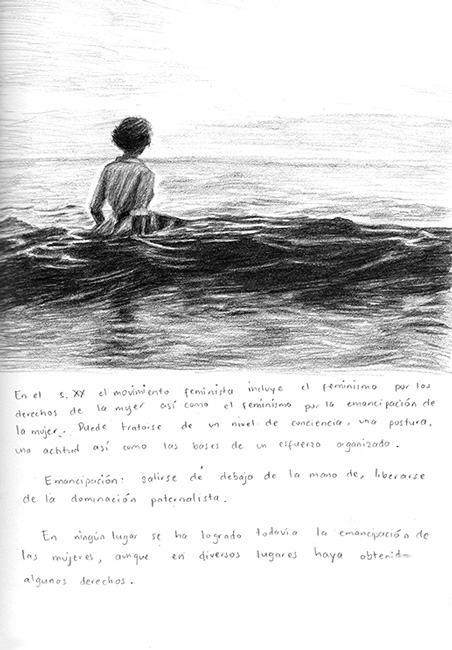 En el s. XX el movimiento feminista incluye el feminismo por los
derechos de la mujer así como el feminismo por la emancipación de
la mujer. Puede tratarse de un nivel de conciencia, una postura,
una actitud así como las bases de un esfuerzo organizado.
Emancipación: salirse de debajo de la mano de, liberarse
de la dominación paternalista.
En ningún lugar se ha logrado todavía la emancipación de
las mujeres, aunque en diversos lugares haya obtenido
algunos derechos.